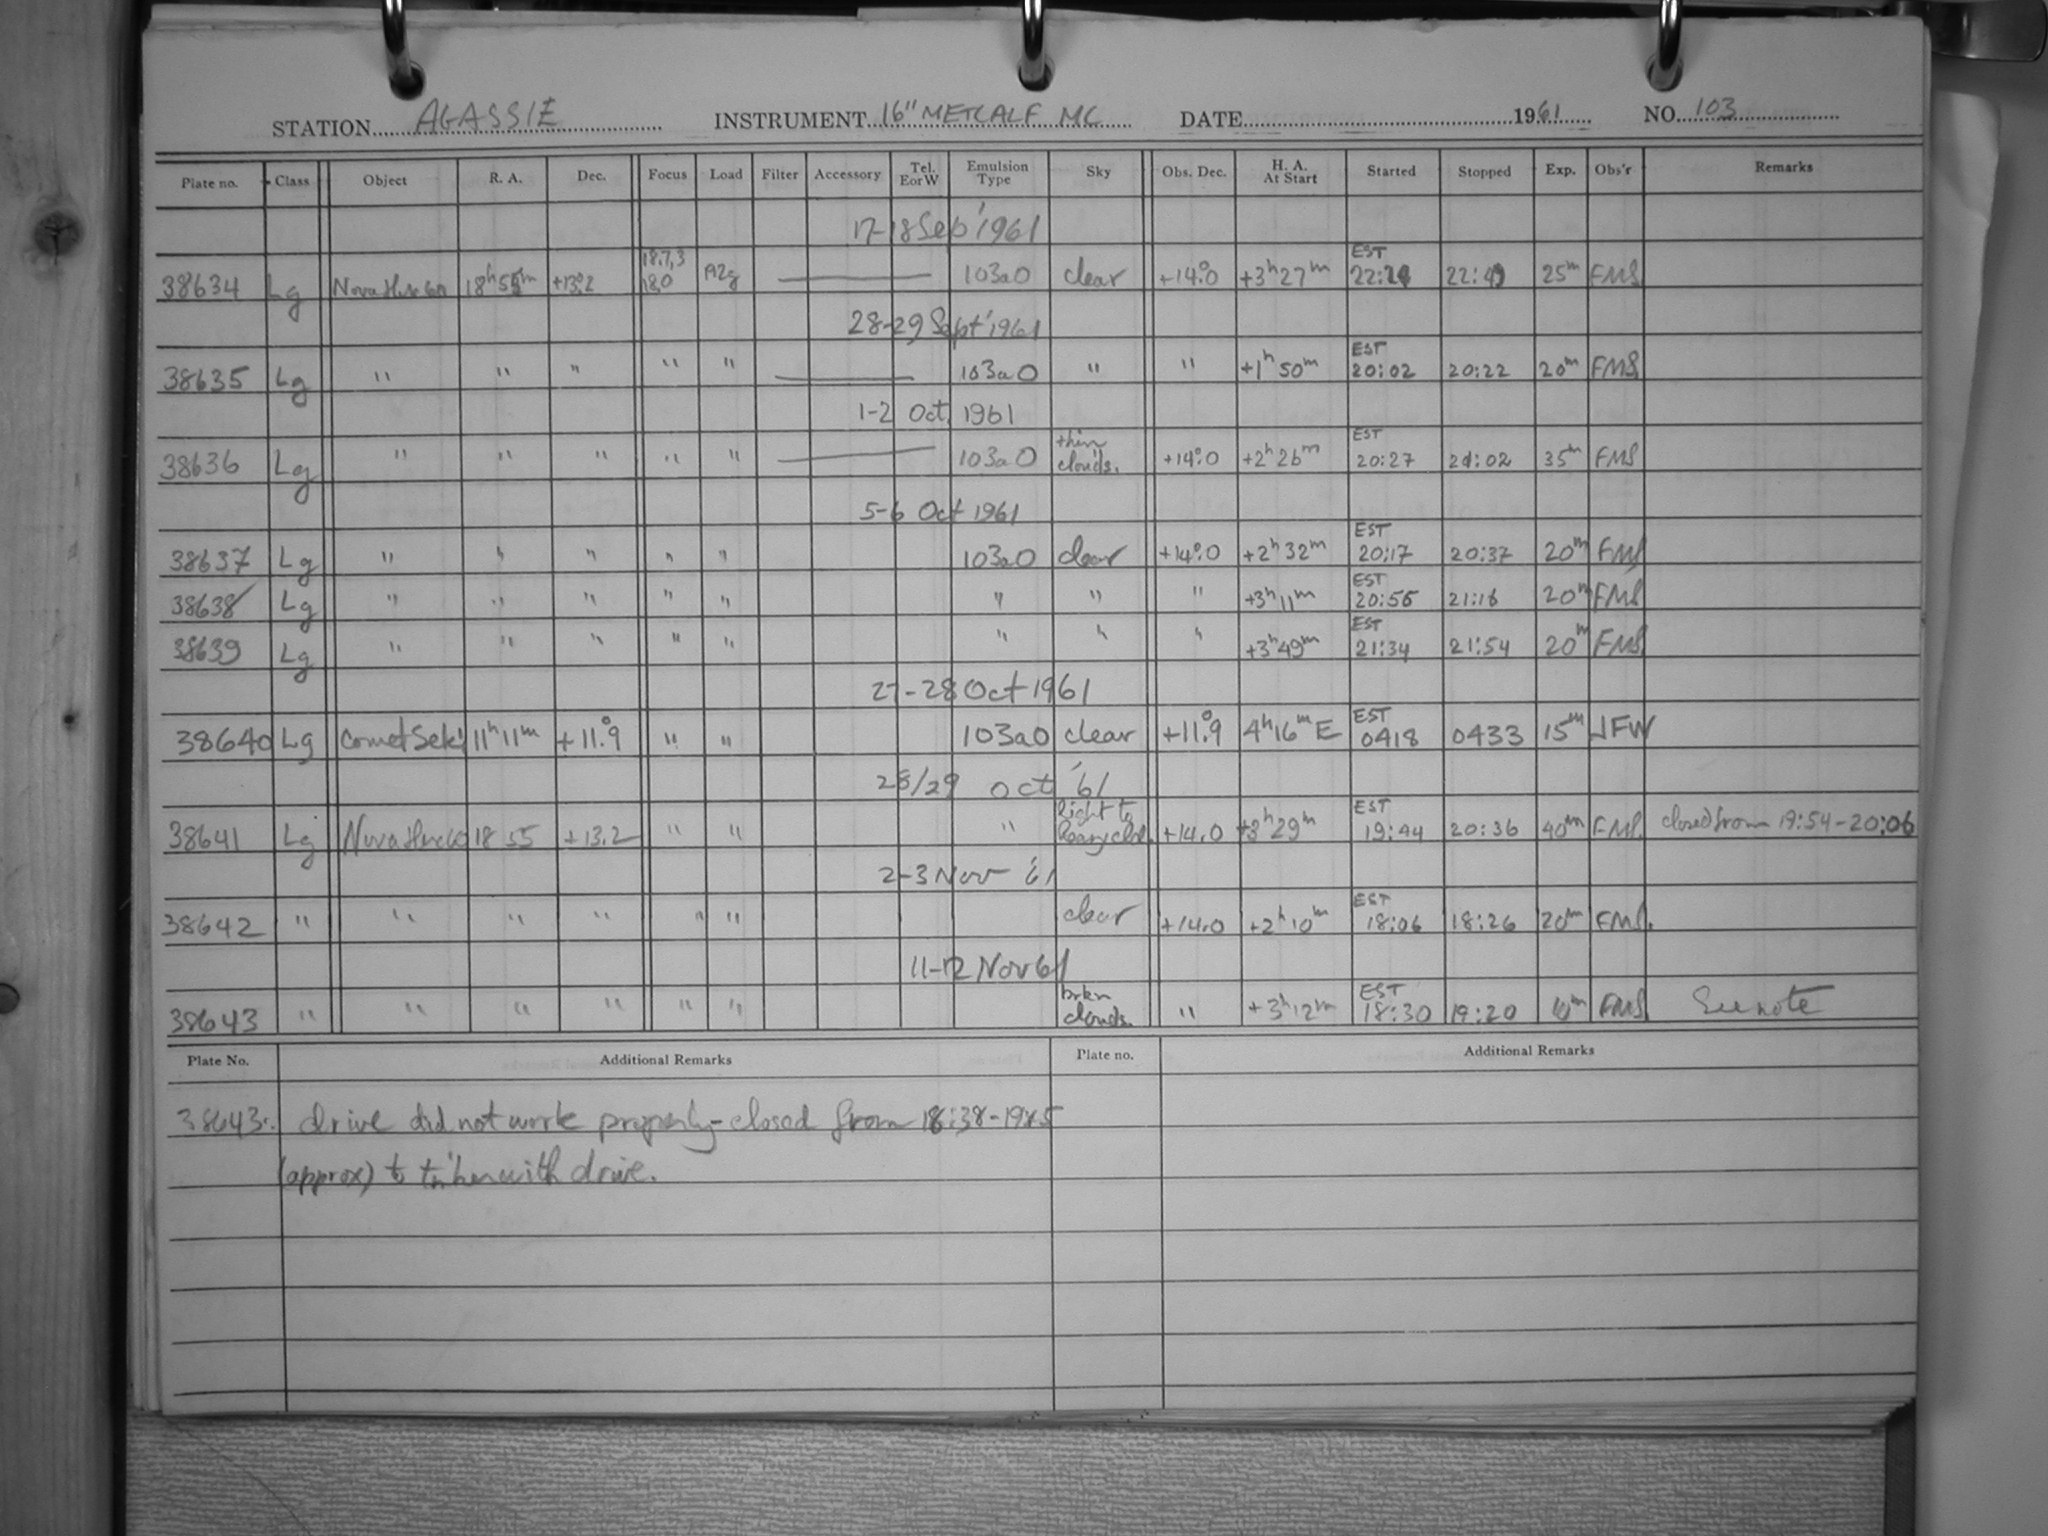 STATION AGASSIZ INSTRUMENT 16" METCALF MC DATE 1961 NO. 103
Plate no. Class Object R. A. Dec. Focus Load Filter Accessory Tel. E or W Emulsion Type Sky Obs. Dec. H. A. At Start Started Stopped Exp. Obs'r Remarks
17-18 Sep '1961
38634 Lg Nova Her 60 18h 55m +13°.2 18.7,3 18.0 A2g 103a0 clear +14°.0 +3h 27m EST 22:24 22:49 25m FMS
28-29 Sept '1961
38635 Lg " " " " " 103a0 " " +1h 50m EST 20:02 20:22 20m FMS
1-2 Oct 1961
38636 Lg " " " " " 103a0 thin clouds. +14°.0 +2h 26m EST 20:27 21:02 35m FMS
5-6 Oct 1961
38637 Lg " " " " " 103a0 clear +14°.0 +2h 32m EST 20:17 20:37 20m FMS
38638 Lg " " " " " " " " +3h 11m EST 20:56 21:16 20m FMS
38639 Lg " " " " " " " " +3h 49m EST 21:34 21:54 20m FMS
27-28 Oct 1961
38640 Lg Comet Seki 11h 11m +11°.9 " " 103a0 clear +11°.9 4h 16m E EST 0418 0433 15m JFW
28/29 Oct '61
38641 Lg Nova Her 60 18 55 +13.2 " " " light to heavy cld. +14.0 +3h 29m EST 19:44 20:36 40m FMS. closed from 19:54-20:06
2-3 Nov '61
38642 " " " " " " clear +14.0 +2h 10m EST 18:06 18:26 20m FMS.
11-12 Nov 61
38643 " " " " " " brkn clouds. " +3h 12m EST 18:30 19:20 FMS See note
Plate No. Additional Remarks Plate no. Additional Remarks
38643: drive did not work properly - closed from 18:38-
(approx) to with drive.